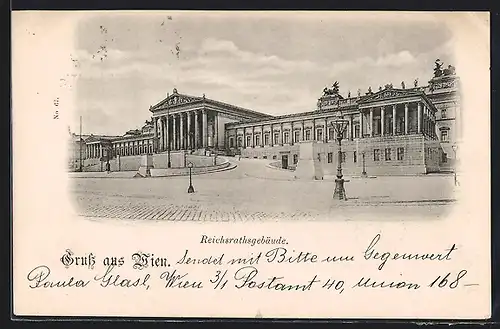 No. 67.
Reichsrathsgebäude.
Gruß aus Wien. Sendet mit Bitte um Gegenwert
Paula Glasl, Wien 3/1 Postamt 40, Union 168 –